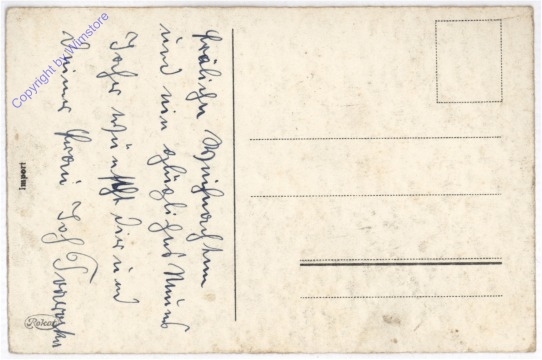 Fröhliche Weihnachten
und ein glückliches Neues
Jahr wünscht dir und
deiner Frau Josf
Import
Rokat
Copyright by Wimstore